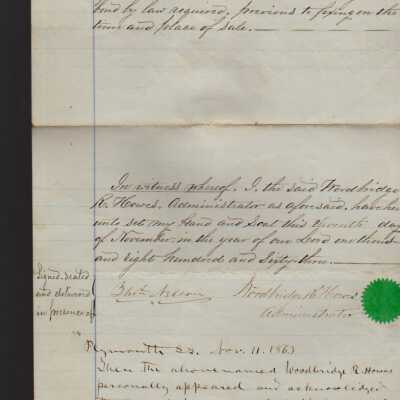 bond by law required, previous to fixing on the
time and place of sale.
In witness whereof, I, the said Woodbridge
R. Howes, Administrator as aforesaid, have her
unto set my hand and seal this day
of November in the year of our Lord one thous
and eight hundred and sixty three.
Signed, sealed
and delivered
in presence of
Woodbridge R. Howes
Administrator
Plymouth ss. Nov. 11. 1863
Then the above named Woodbridge R. Howes
personally appeared and acknowledged